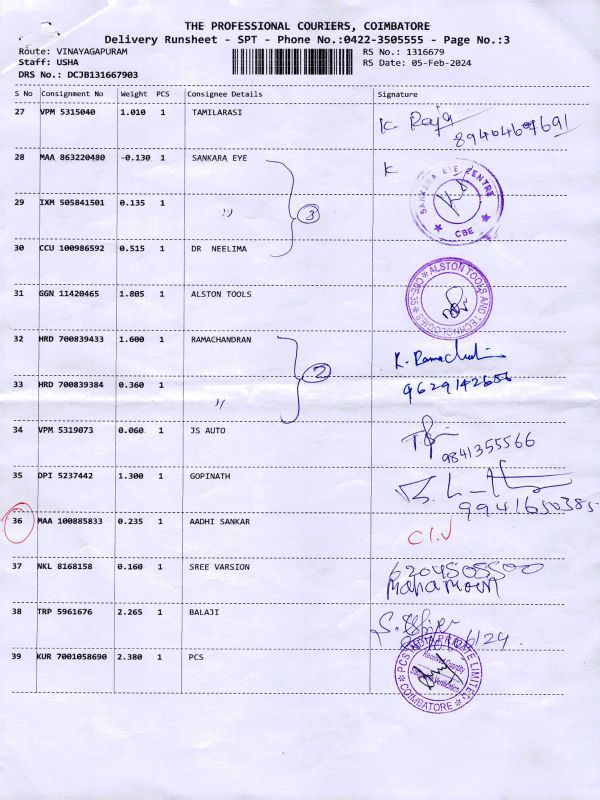 THE PROFESSIONAL COURIERS, COIMBATORE
Delivery Runsheet - SPT - Phone No.:0422-3505555 - Page No.:3
Route: VINAYAGAPURAM RS No.: 1316679
Staff: USHA RS Date: 05-Feb-2024
DRS No.: DCJB131667903
S No Consignment No Weight PCS Consignee Details Signature
27 VPM 5315040 1.010 1 TAMILARASI K Raja
89404607691
28 MAA 863220480 -0.130 1 SANKARA EYE K
SANKARA EYE CENTRE CBE
29 IXM 505841501 0.135 1 〃 3
30 CCU 100986592 0.515 1 DR NEELIMA
31 GGN 11420465 1.805 1 ALSTON TOOLS
ALSTON TOOLS AND TECHNOLOGIES CBE-35
32 HRD 700839433 1.600 1 RAMACHANDRAN
33 HRD 700839384 0.360 1 〃 2
34 VPM 5319073 0.060 1 JS AUTO
9841355566
35 DPI 5237442 1.300 1 GOPINATH
9941650385
36 MAA 100885833 0.235 1 AADHI SANKAR
37 NKL 8168158 0.160 1 SREE VARSION
38 TRP 5961676 2.265 1 BALAJI
39 KUR 7001058690 2.380 1 PCS
PRIVATE LIMITED COIMBATORE